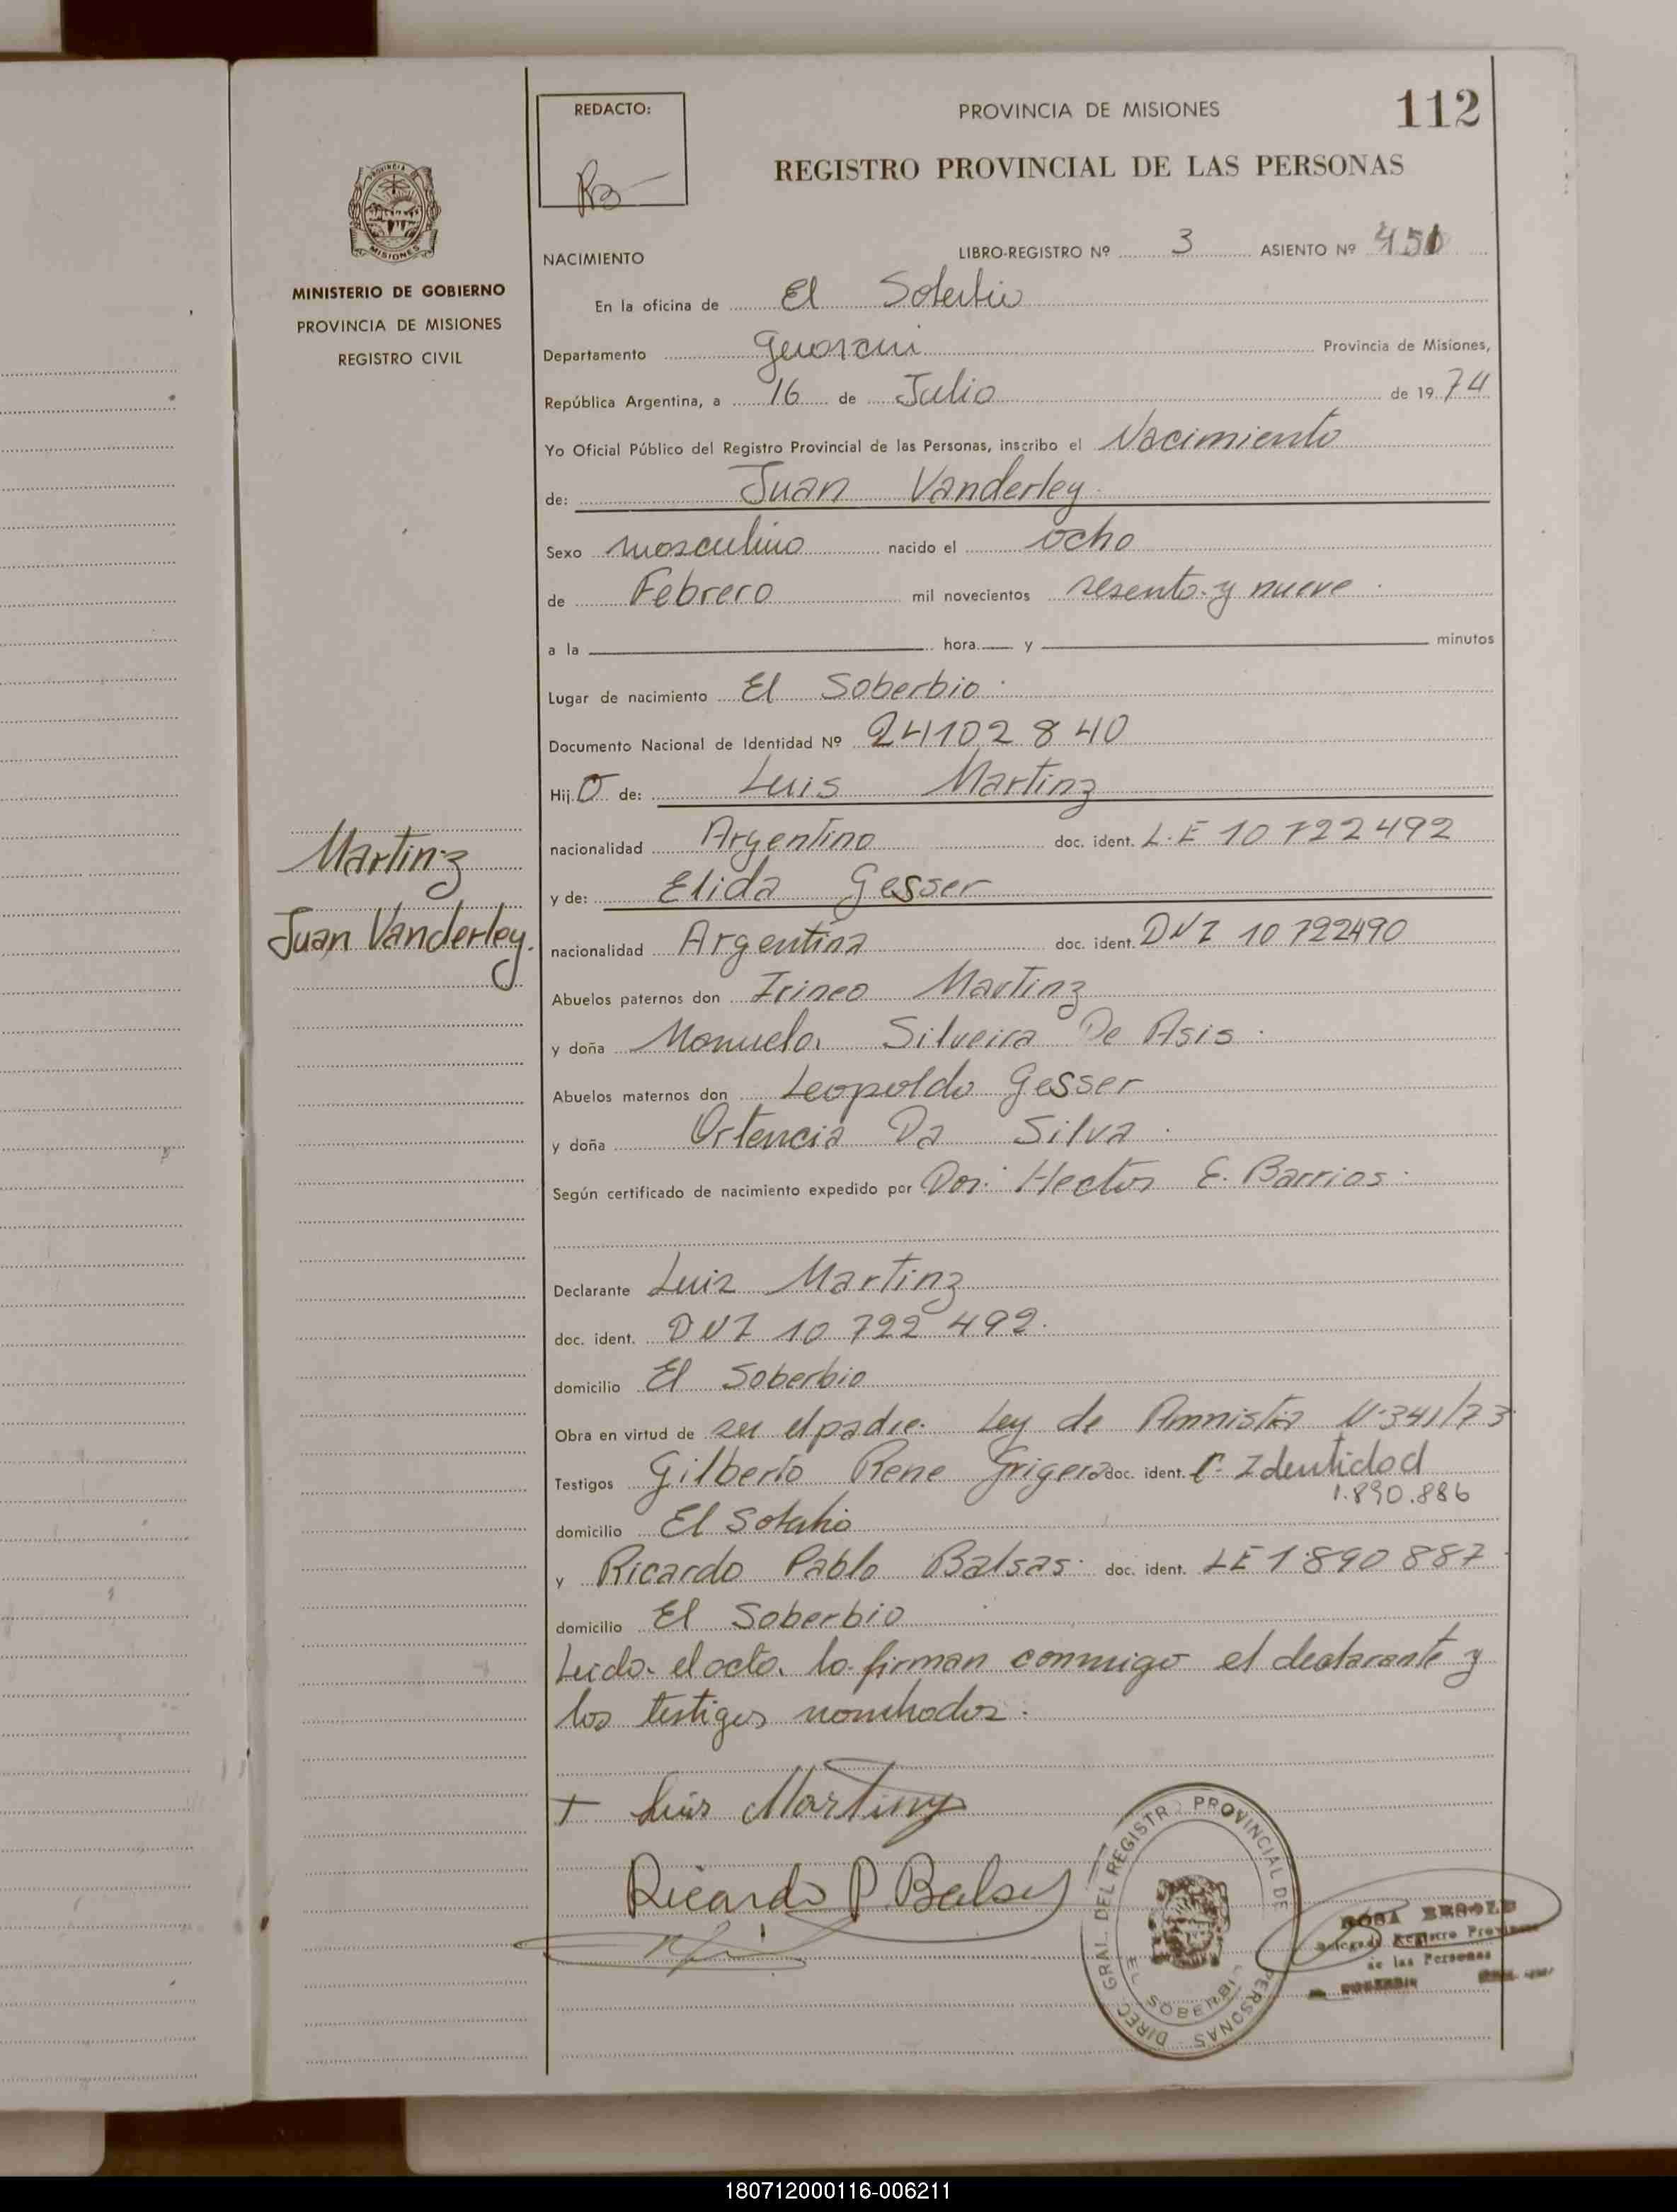 REDACTO:
PROVINCIA DE MISIONES
112
REGISTRO PROVINCIAL DE LAS PERSONAS
PROVINCIA
MISIONES
MINISTERIO DE GOBIERNO
PROVINCIA DE MISIONES
REGISTRO CIVIL
NACIMIENTO
LIBRO-REGISTRO Nº 3 ASIENTO Nº 451
En la oficina de El Soberbio
Departamento Guarani Provincia de Misiones,
República Argentina, a 16 de Julio de 1974
Yo Oficial Público del Registro Provincial de las Personas, inscribo el Nacimiento
de: Juan Vanderley
Sexo masculino nacido el ocho
de Febrero mil novecientos sesenta y nueve
a la hora y minutos
Lugar de nacimiento El Soberbio
Documento Nacional de Identidad Nº 24102840
Hij o de: Luis Martinz
nacionalidad Argentino doc. ident. L.E 10722492
y de: Elida Gesser
nacionalidad Argentina doc. ident. DNI 10722490
Abuelos paternos don Irineo Martinz
y doña Manuela Silveira De Asis
Abuelos maternos don Leopoldo Gesser
y doña Ortencia Da Silva
Según certificado de nacimiento expedido por Dor. Hector E. Barrios
Martinz
Juan Vanderley.
Declarante Luiz Martinz
doc. ident. DNI 10 722 492.
domicilio El Soberbio
Obra en virtud de ser el padre. Ley de Amnistia N. 341/73
Testigos Gilberto Rene Grigera doc. ident. C. Identidad
1.890.886
domicilio El Soberbio
y Ricardo Pablo Balsas doc. ident. LE 1890887
domicilio El Soberbio
Leida el acta la firman conmigo el declarante y
los testigos nombrados.
+ Luis Martinz
Ricardo P. Balsas
DIREC. GRAL. DEL REGISTRO PROVINCIAL DE PERSONAS
EL SOBERBIO
ROSA
Delegada Registro Provincial
de las Personas
EL SOBERBIO
180712000116-006211